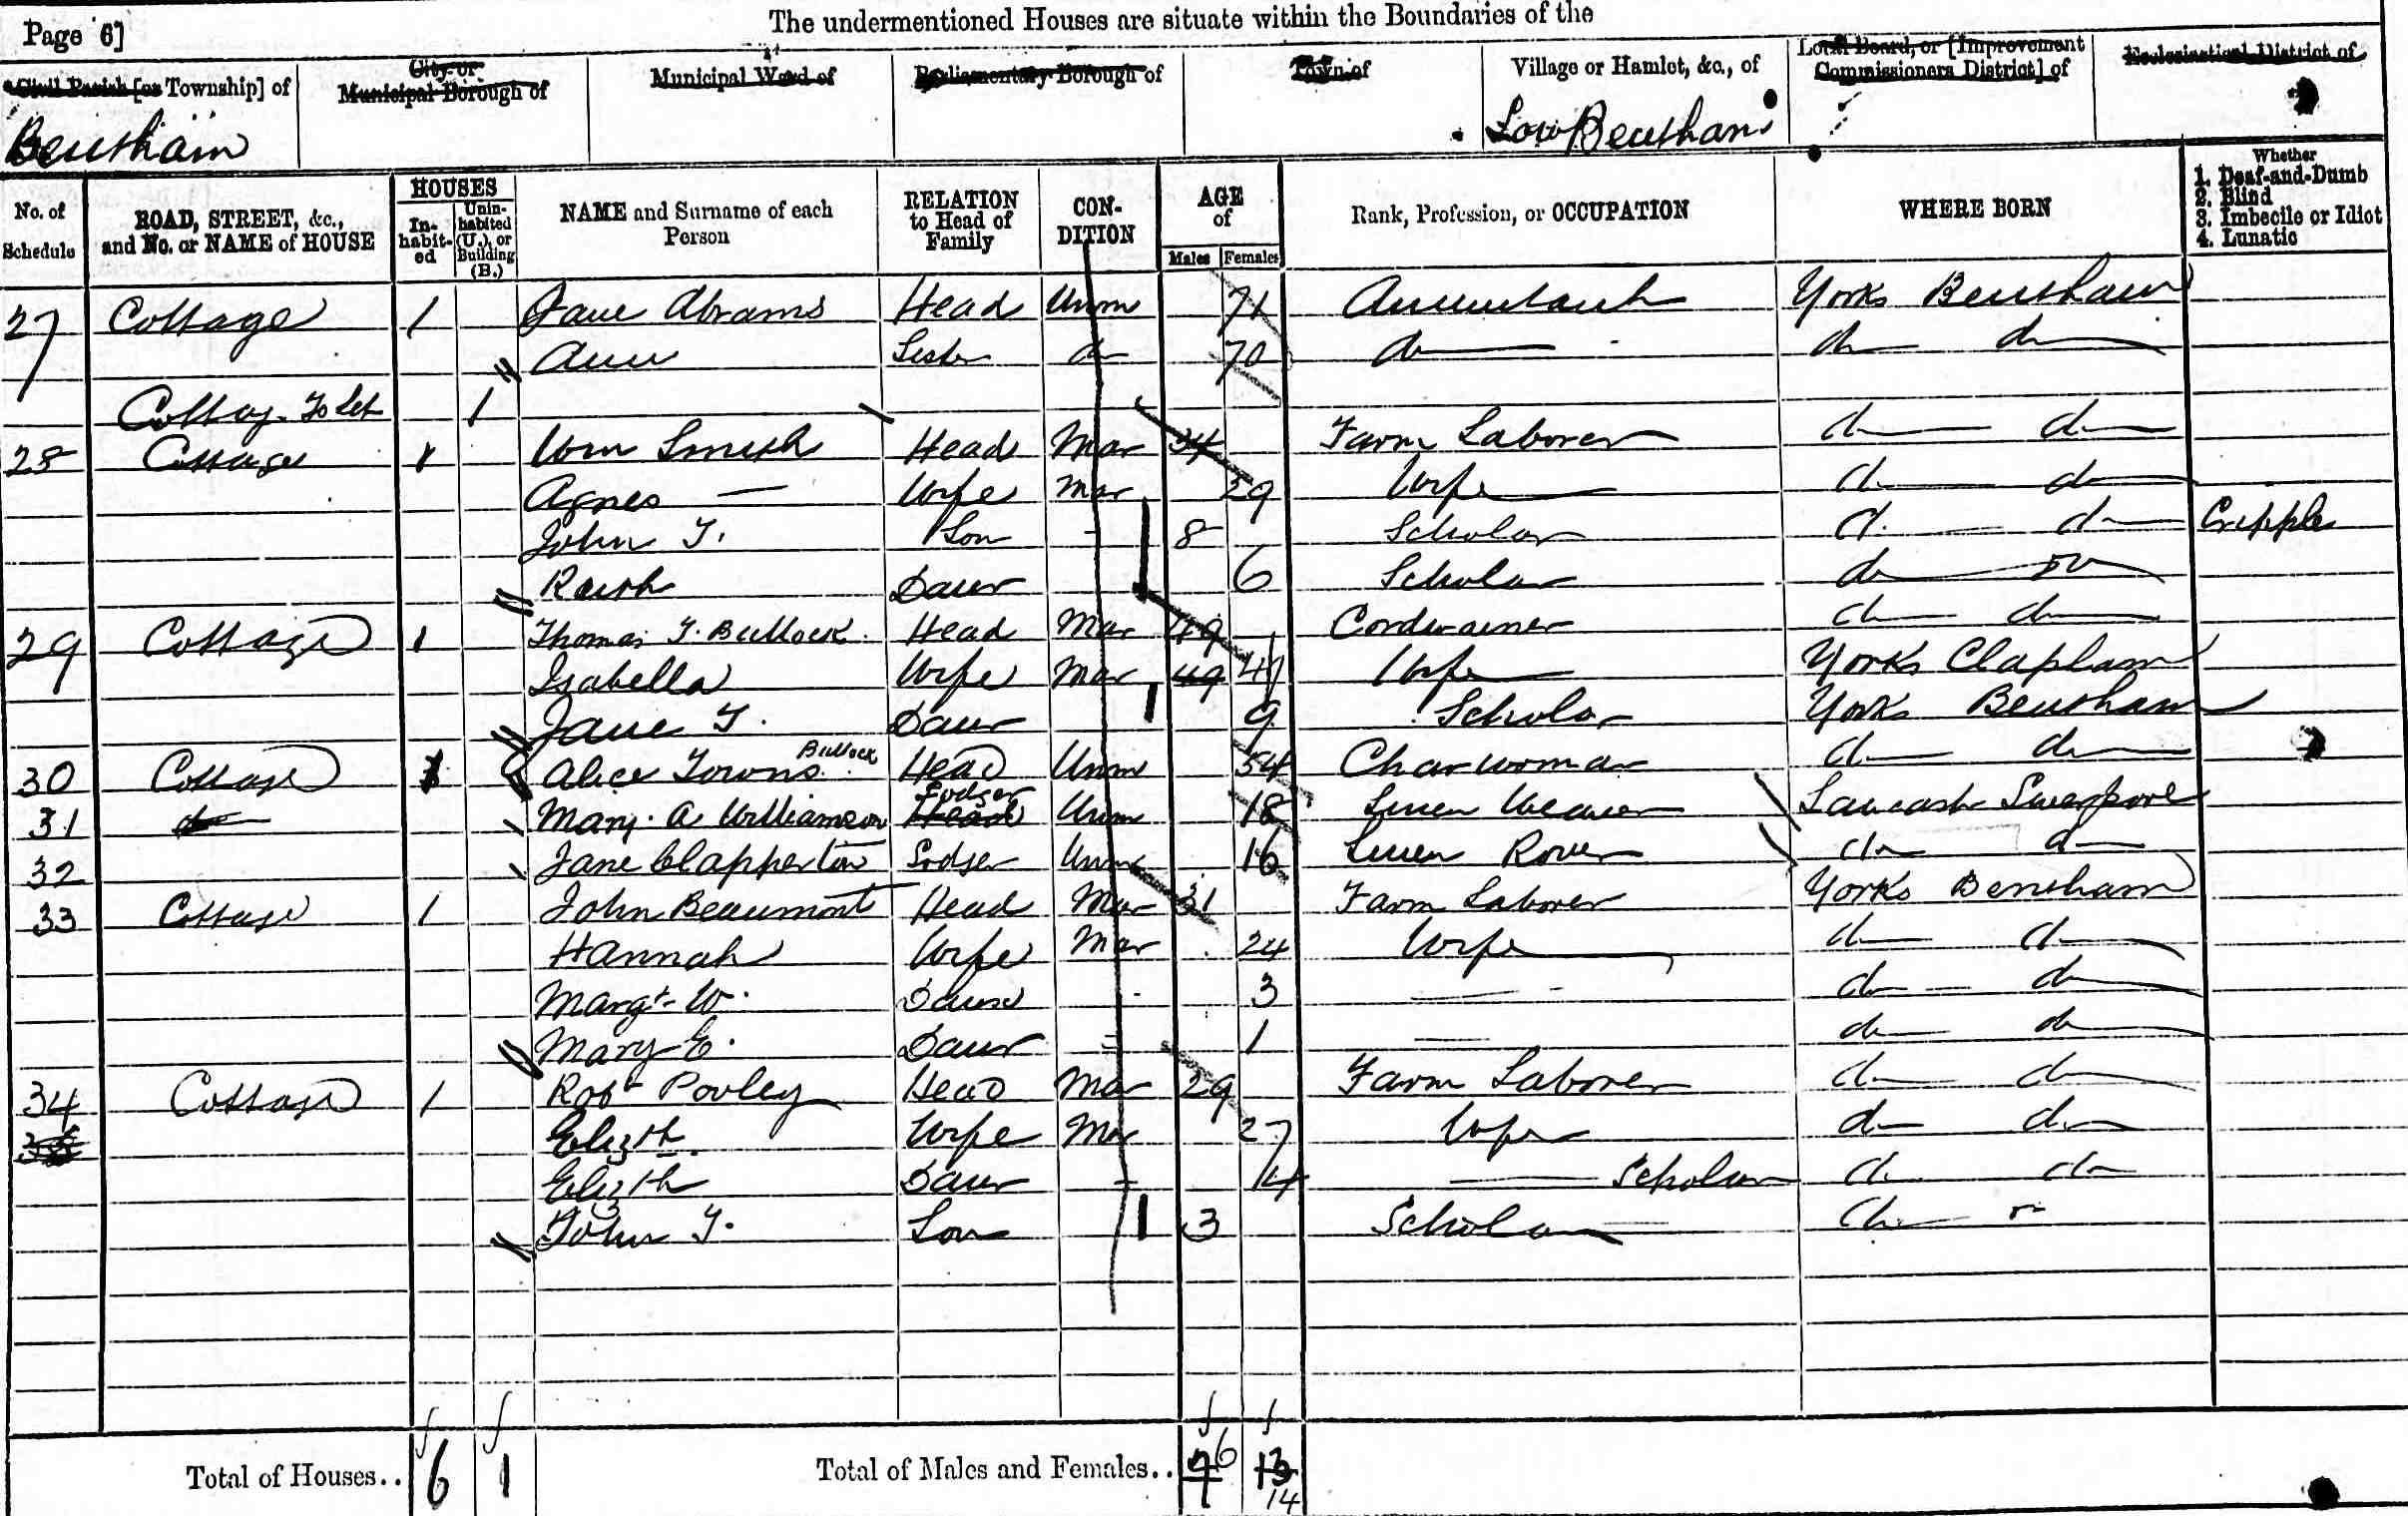 Page 6]
The undermentioned Houses are situate within the Boundaries of the
Civil Parish [or Township] of
City or Municipal Borough of
Municipal Ward of
Parliamentary Borough of
Town of
Village or Hamlet, &c., of
Local Board, or [Improvement Commissioners District] of
Ecclesiastical District of
Bentham
Low Bentham
No. of Schedule
ROAD, STREET, &c., and No. or NAME of HOUSE
HOUSES
Inhabited
Uninhabited (U.), or Building (B.)
NAME and Surname of each Person
RELATION to Head of Family
CONDITION
AGE of
Males
Females
Rank, Profession, or OCCUPATION
WHERE BORN
Whether
1. Deaf-and-Dumb
2. Blind
3. Imbecile or Idiot
4. Lunatic
27 Cottage 1 Jane Abrams Head Unm 71 Annuitant Yorks Bentham
Ann Sister do 70 do do do
Cottag To Let 1
28 Cottage 1 Wm Smith Head Mar 34 Farm Laborer do do
Agnes — Wife Mar 39 Wife do do
John T. Son - 8 Scholar do do Cripple
Ruth Daur 6 Scholar do do
29 Cottage 1 Thomas T. Bullock Head Mar 49 Cordwainer do do
Isabella Wife Mar 49 41 Wife Yorks Clapham
Jane T. Daur 9 Scholar Yorks Bentham
30 Cottage 1 Alice Towns Bullock Head Unm 54 Charwoman do do
31 do Mary A Williamson Head Lodger Unm 18 Linen Weaver Lancash Liverpool
32 Jane Clapperton Lodger Unm 16 Linen Rover do do
33 Cottage 1 John Beaumont Head Mar 31 Farm Laborer Yorks Bentham
Hannah Wife Mar 24 Wife do do
Margt W. Daur - 3 — do do
Mary E. Daur - 1 — do do
34 Cottage 1 Robt Pooley Head Mar 29 Farm Laborer do do
35 Elizth Wife Mar 27 Wife do do
Elizth Daur - 14 — Scholar do do
John T. Son 3 Scholar do do
Total of Houses.. 6 1 Total of Males and Females.. 7 6 13
14